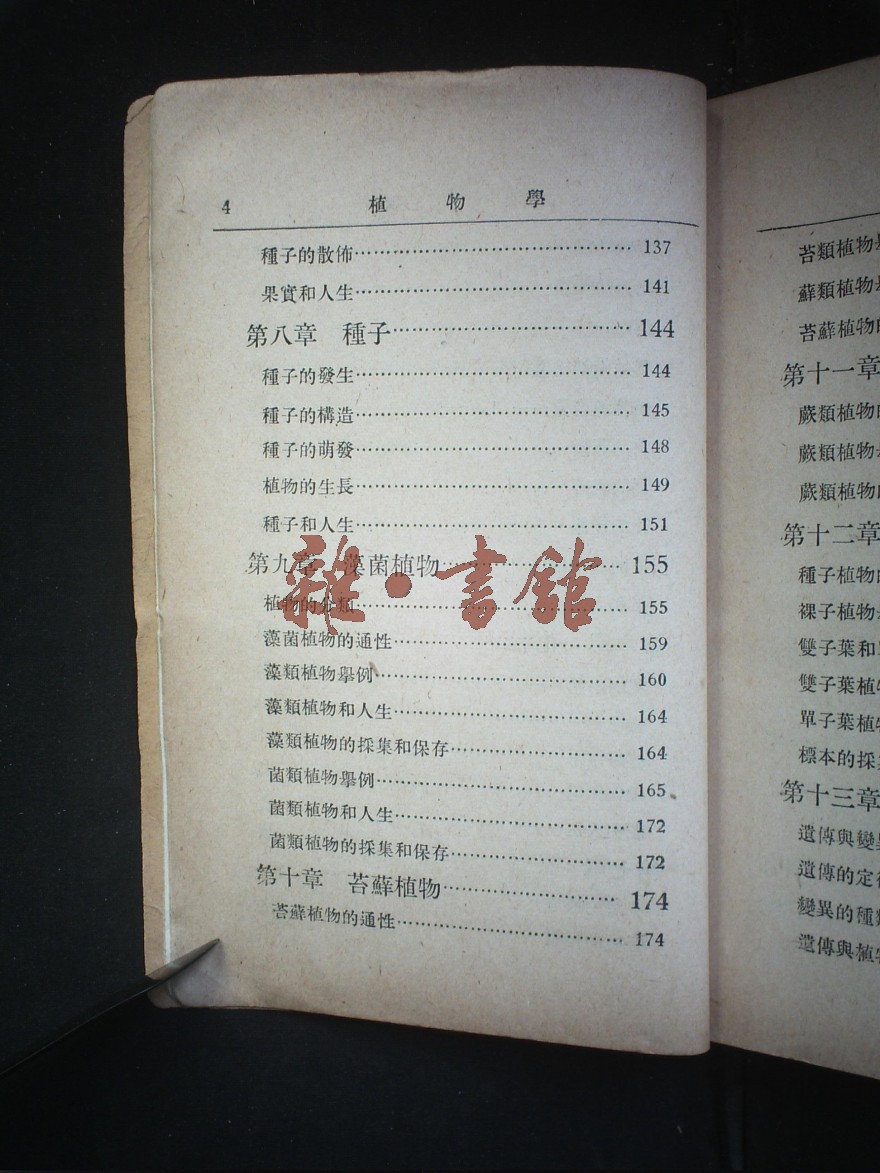 4 植物學
種子的散佈 137
果實和人生 141
第八章 種子 144
種子的發生 144
種子的構造 145
種子的萌發 148
植物的生長 149
種子和人生 151
第九章 藻菌植物 155
植物的分類 155
藻菌植物的通性 159
藻類植物舉例 160
藻類植物和人生 164
藻類植物的採集和保存 164
菌類植物舉例 165
菌類植物和人生 172
菌類植物的採集和保存 172
第十章 苔蘚植物 174
苔蘚植物的通性 174
雜·書館
苔類植物
蘚類植物
苔蘚植物的
第十一章
蕨類植物的
蕨類植物
蕨類植物的
第十二章
種子植物的
裸子植物
雙子葉和
雙子葉植
單子葉植
標本的採
第十三章
遺傳與變
遺傳的定
變異的種
遺傳與植